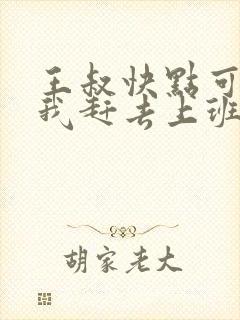 王叔快點可
我赶去上班
胡家老大